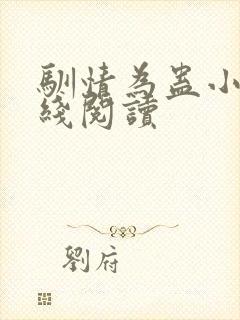 馴情為蛊小
綫閱讀
劉府